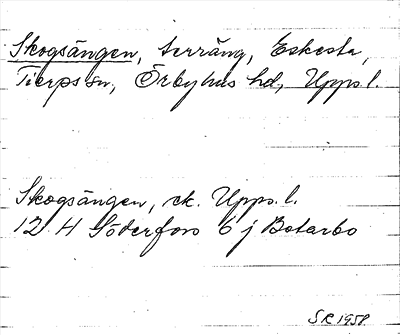 Skogsängen, terräng, Eskesta,
Tierps sn, Örbyhus hd, Upps. l.
Skogsängen, ek. Upps. l.
12 H Söderfors 6 j Botarbo
SR 1958.